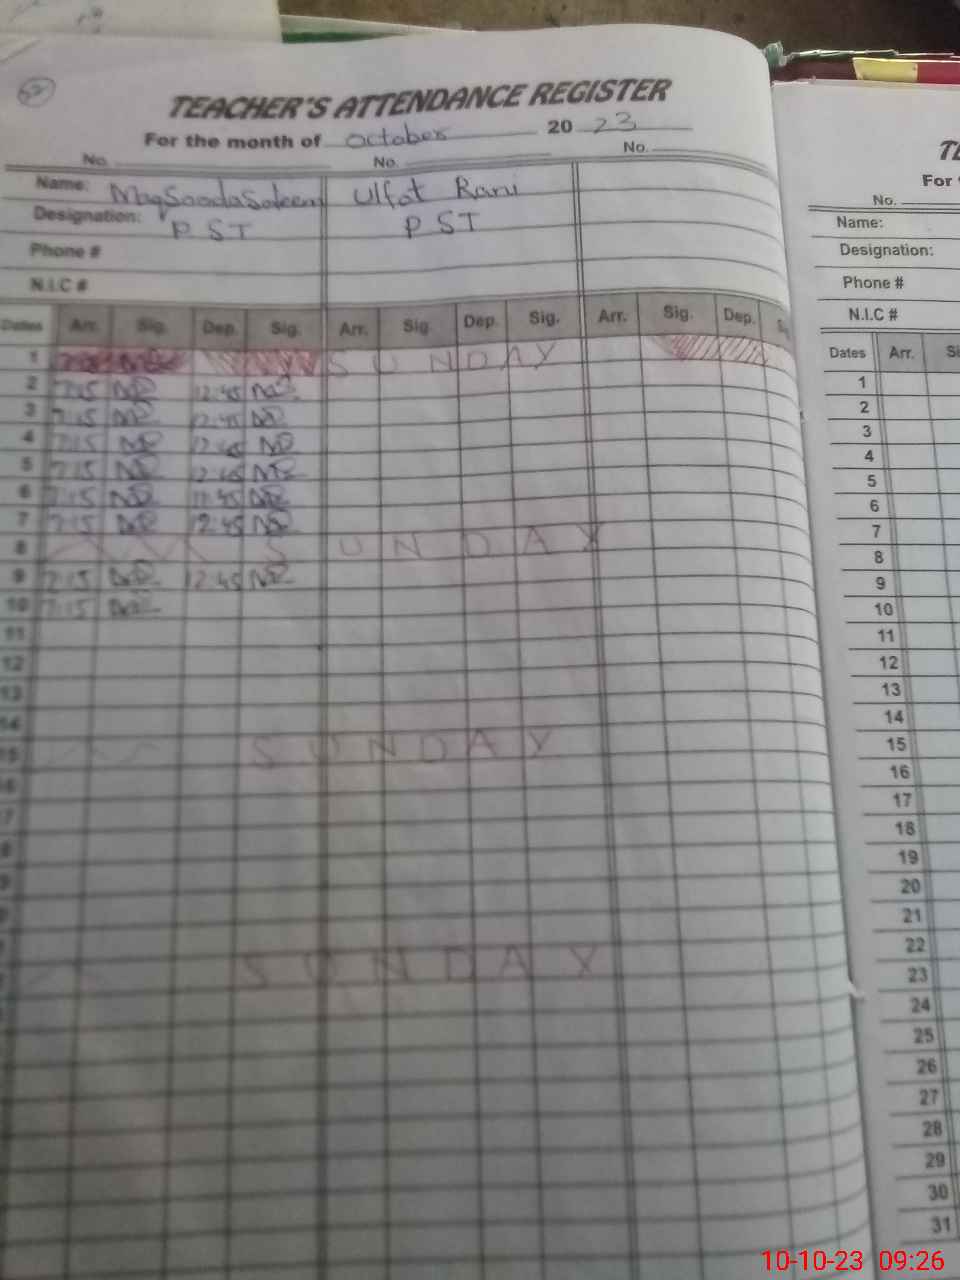 52
TEACHER'S ATTENDANCE REGISTER
For the month of October 2023
No. No. No.
Name: Maqsooda Saleem Ulfat Rani
Designation: PST PST
Phone #
N.I.C #
Dates Arr. Sig. Dep. Sig. Arr. Sig. Dep. Sig. Arr. Sig. Dep.
1 SUNDAY
2 7:15 12:45
3 7:15 12:45
4 7:15 12:45
5 7:15 12:45
6 7:15
7 7:15 12:45
8 SUNDAY
9 7:15 12:45
10 7:15
11
12
13
14
15 SUNDAY
SUNDAY
For
No.
Name:
Designation:
Phone #
N.I.C #
Dates Arr.
1
2
3
4
5
6
7
8
9
10
11
12
13
14
15
16
17
18
19
20
21
22
23
24
25
26
27
28
29
30
31
10-10-23 09:26